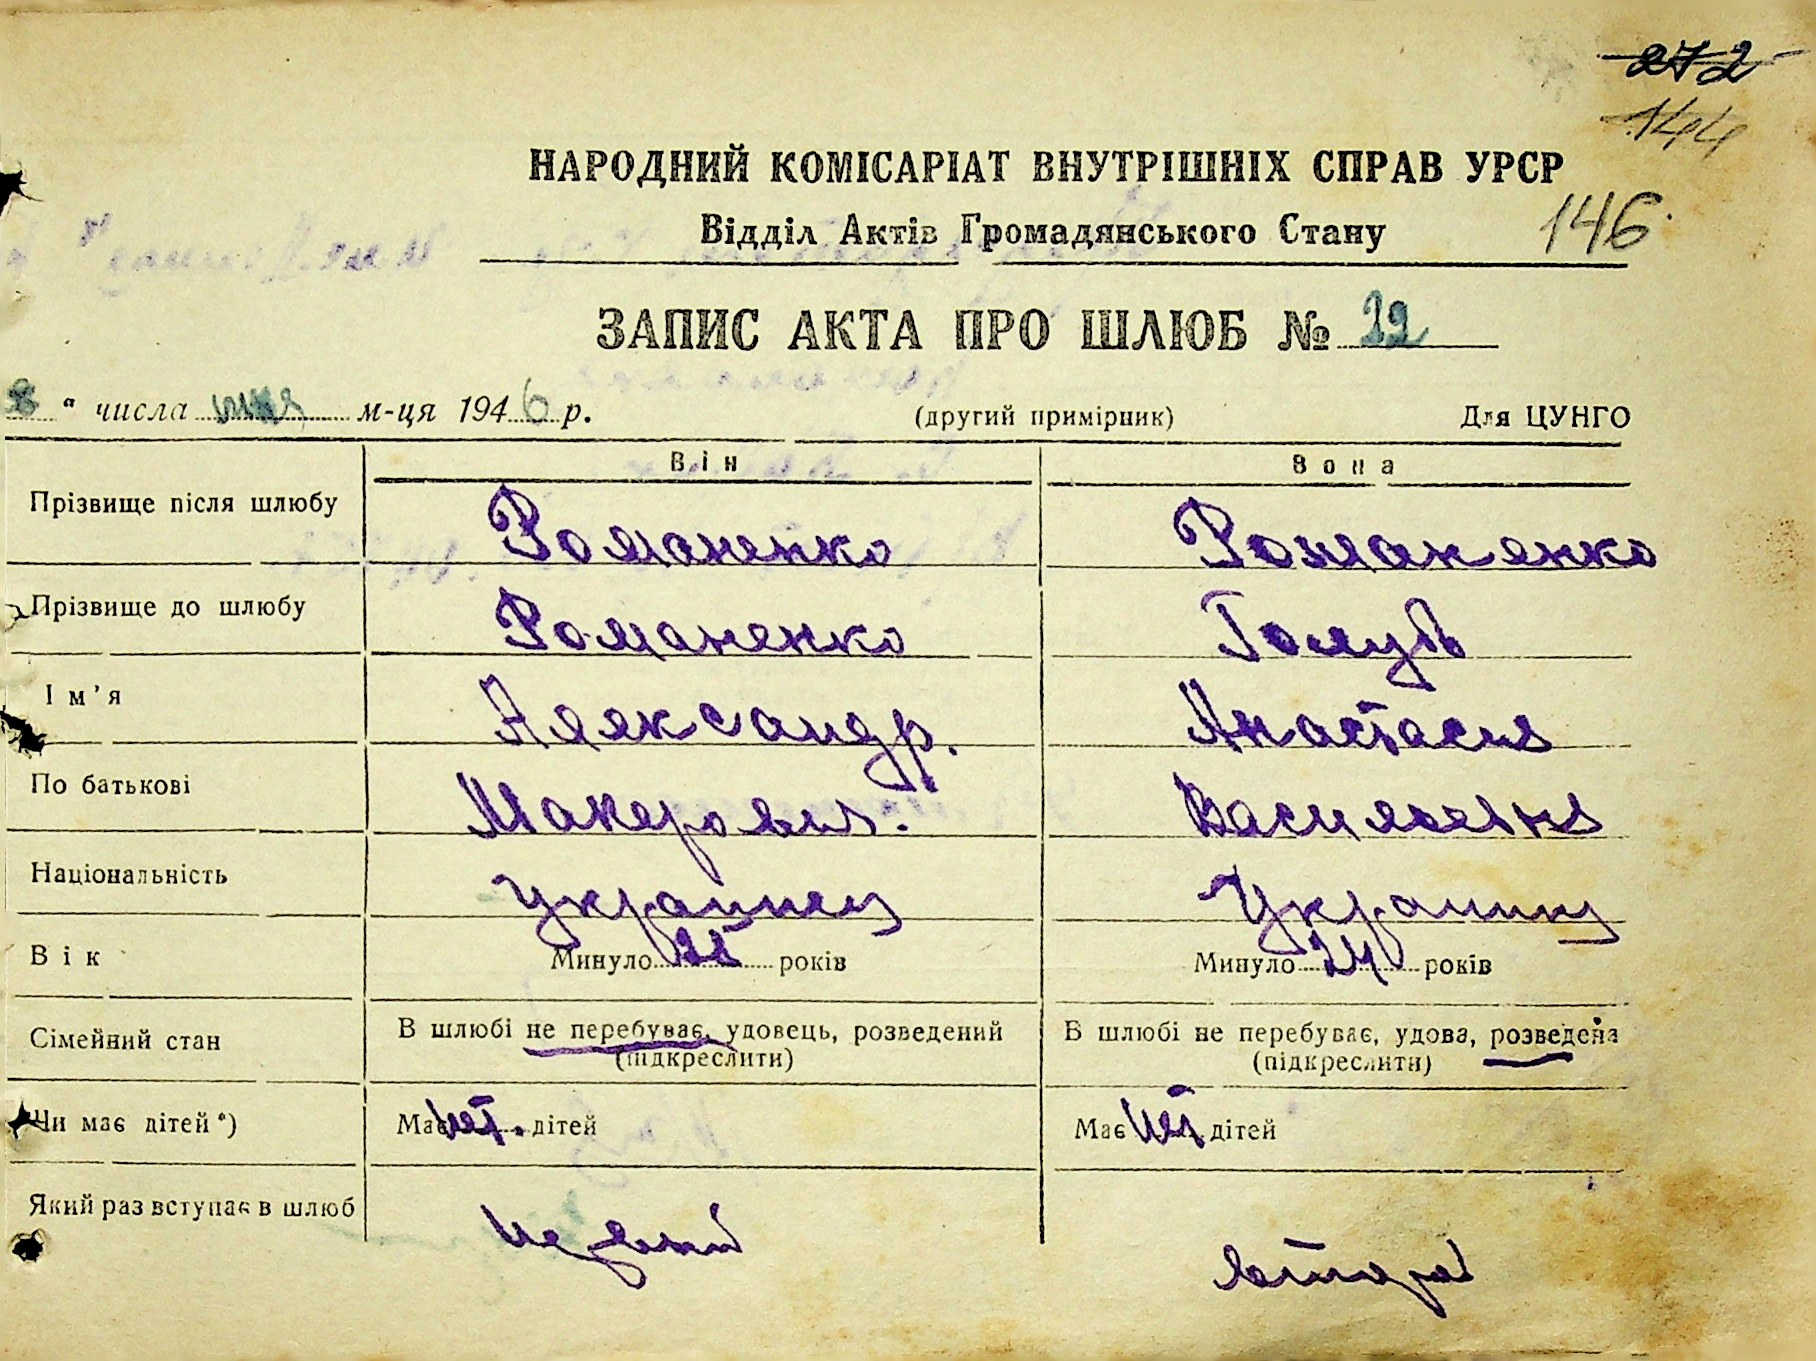 272
144
НАРОДНИЙ КОМІСАРІАТ ВНУТРІШНІХ СПРАВ УРСР
Відділ Актів Громадянського Стану 146
ЗАПИС АКТА ПРО ШЛЮБ № 22
8 " числа м-ця 1946 р. (другий примірник) Для ЦУНГО
Він Вона
Прізвище після шлюбу Романенко Романенко
Прізвище до шлюбу Романенко Голуб
Ім'я Александр. Анастасия
По батькові Макарович. Васильевна
Національність Украинец Украинка
Вік Минуло років Минуло 24 років
Сімейний стан В шлюбі не перебуває, удовець, розведений В шлюбі не перебуває, удова, розведена
(підкреслити) (підкреслити)
Чи має дітей*) Має нет. дітей Має нет дітей
Який раз вступає в шлюб Первый второй